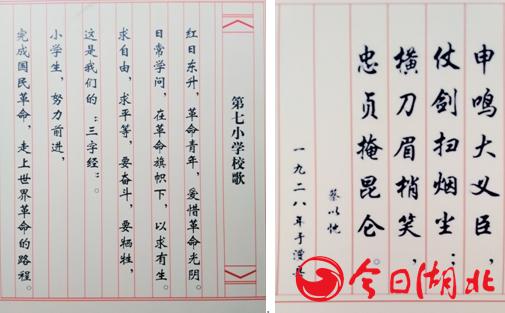 第七小学校歌
红日东升，革命青年，爱惜革命光阴。
日常学问，在革命旗帜下，以求有生。
求自由，求平等，要奋斗，要牺牲，
这是我们的：三字经：。
小学生，努力前进，
完成国民革命，走上世界革命的路程。
申鸣大义臣，
仗剑扫烟尘；
横刀眉梢笑，
忠贞掩昆仑。
蔡以忱
一九二八年于澧县
今日湖北